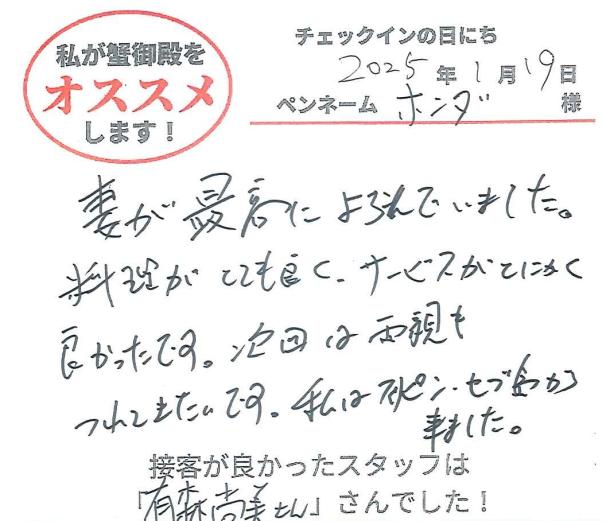 私が蟹御殿を
オススメ
します！
チェックインの日にち
2025年1月19日
ペンネーム ホンダ 様
妻が最高によろこんでいました。
料理がとても良く、サービスがとにかく
良かったです。次回は両親も
つれてきたいです。私はフィリピン・セブ島から
来ました。
接客が良かったスタッフは
「有森尚美さん」さんでした！